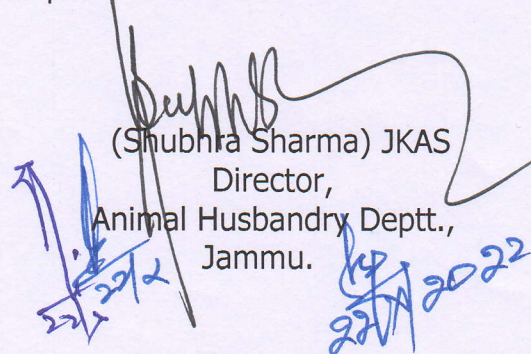 (Shubhra Sharma) JKAS
Director,
Animal Husbandry Deptt.,
Jammu.
22/2
2022